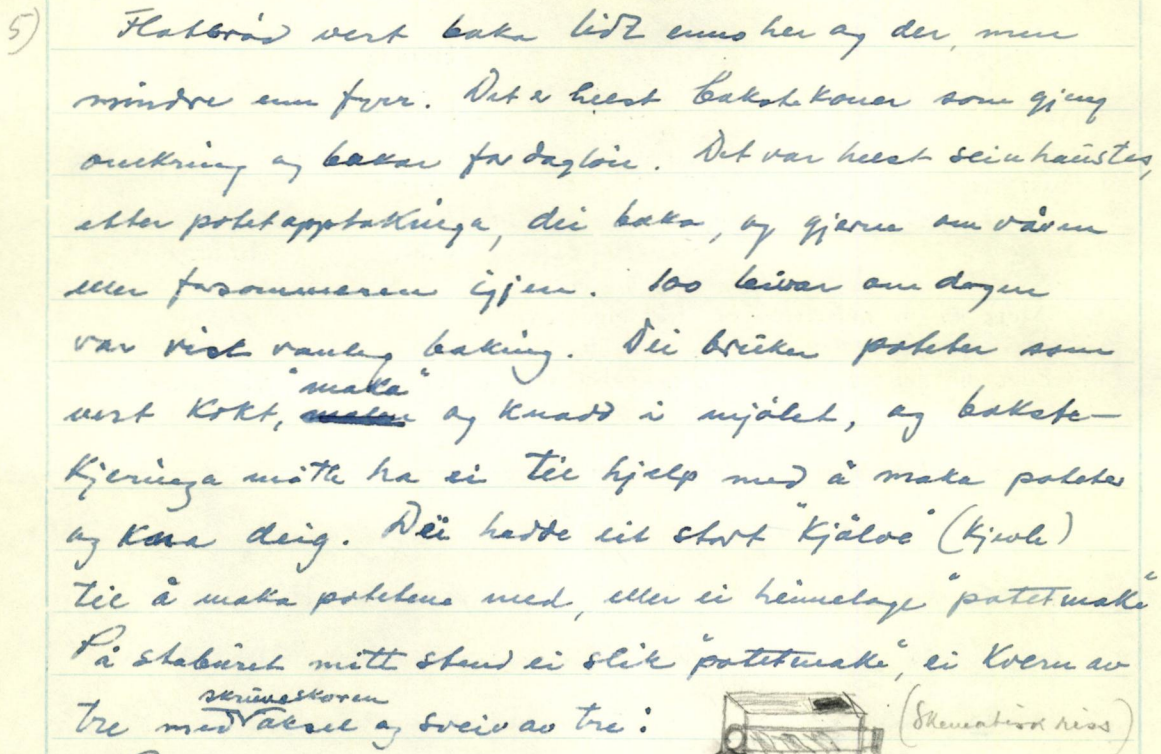 5) Flatbrød vert baka lidt enno her og der, men
mindre enn fyrr. Det er helst bakstekoner som gjeng
omkring og bakar for dagløn. Det var helst seinhaustes,
etter potetopptakinga, dei baka, og gjerne om våren
eller forsommeren igjen. 100 leivar om dagen
var visst vanleg baking. Dei bruker poteter som
vert kokt, "maka" og knadd i mjølet, og bakste-
kjeringa måtte ha ei til hjelp med å maka poteter
og kna deig. Dei hadde eit stort "Kjälve" (kjevle)
til å maka potetene med, eller ei heimelaga "potetmake"
På stabúret mitt stend ei slik "potetmake", ei kvern av
tre med skruveskoren aksel og sveiv av tre: (Skematisk riss)